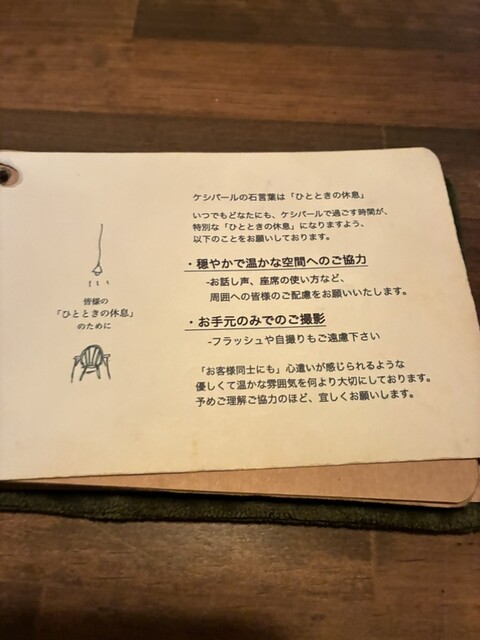 ケシパールの石言葉は「ひとときの休息」
いつでもどなたにも、ケシパールで過ごす時間が、
特別な「ひとときの休息」になりますよう、
以下のことをお願いしております。
・穏やかで温かな空間へのご協力
-お話し声、座席の使い方など、
周囲への皆様のご配慮をお願いいたします。
・お手元のみでのご撮影
-フラッシュや自撮りもご遠慮下さい
「お客様同士にも」心遣いが感じられるような
優しくて温かな雰囲気を何より大切にしております。
予めご理解ご協力のほど、宜しくお願いします。
皆様の
「ひとときの休息」
のために